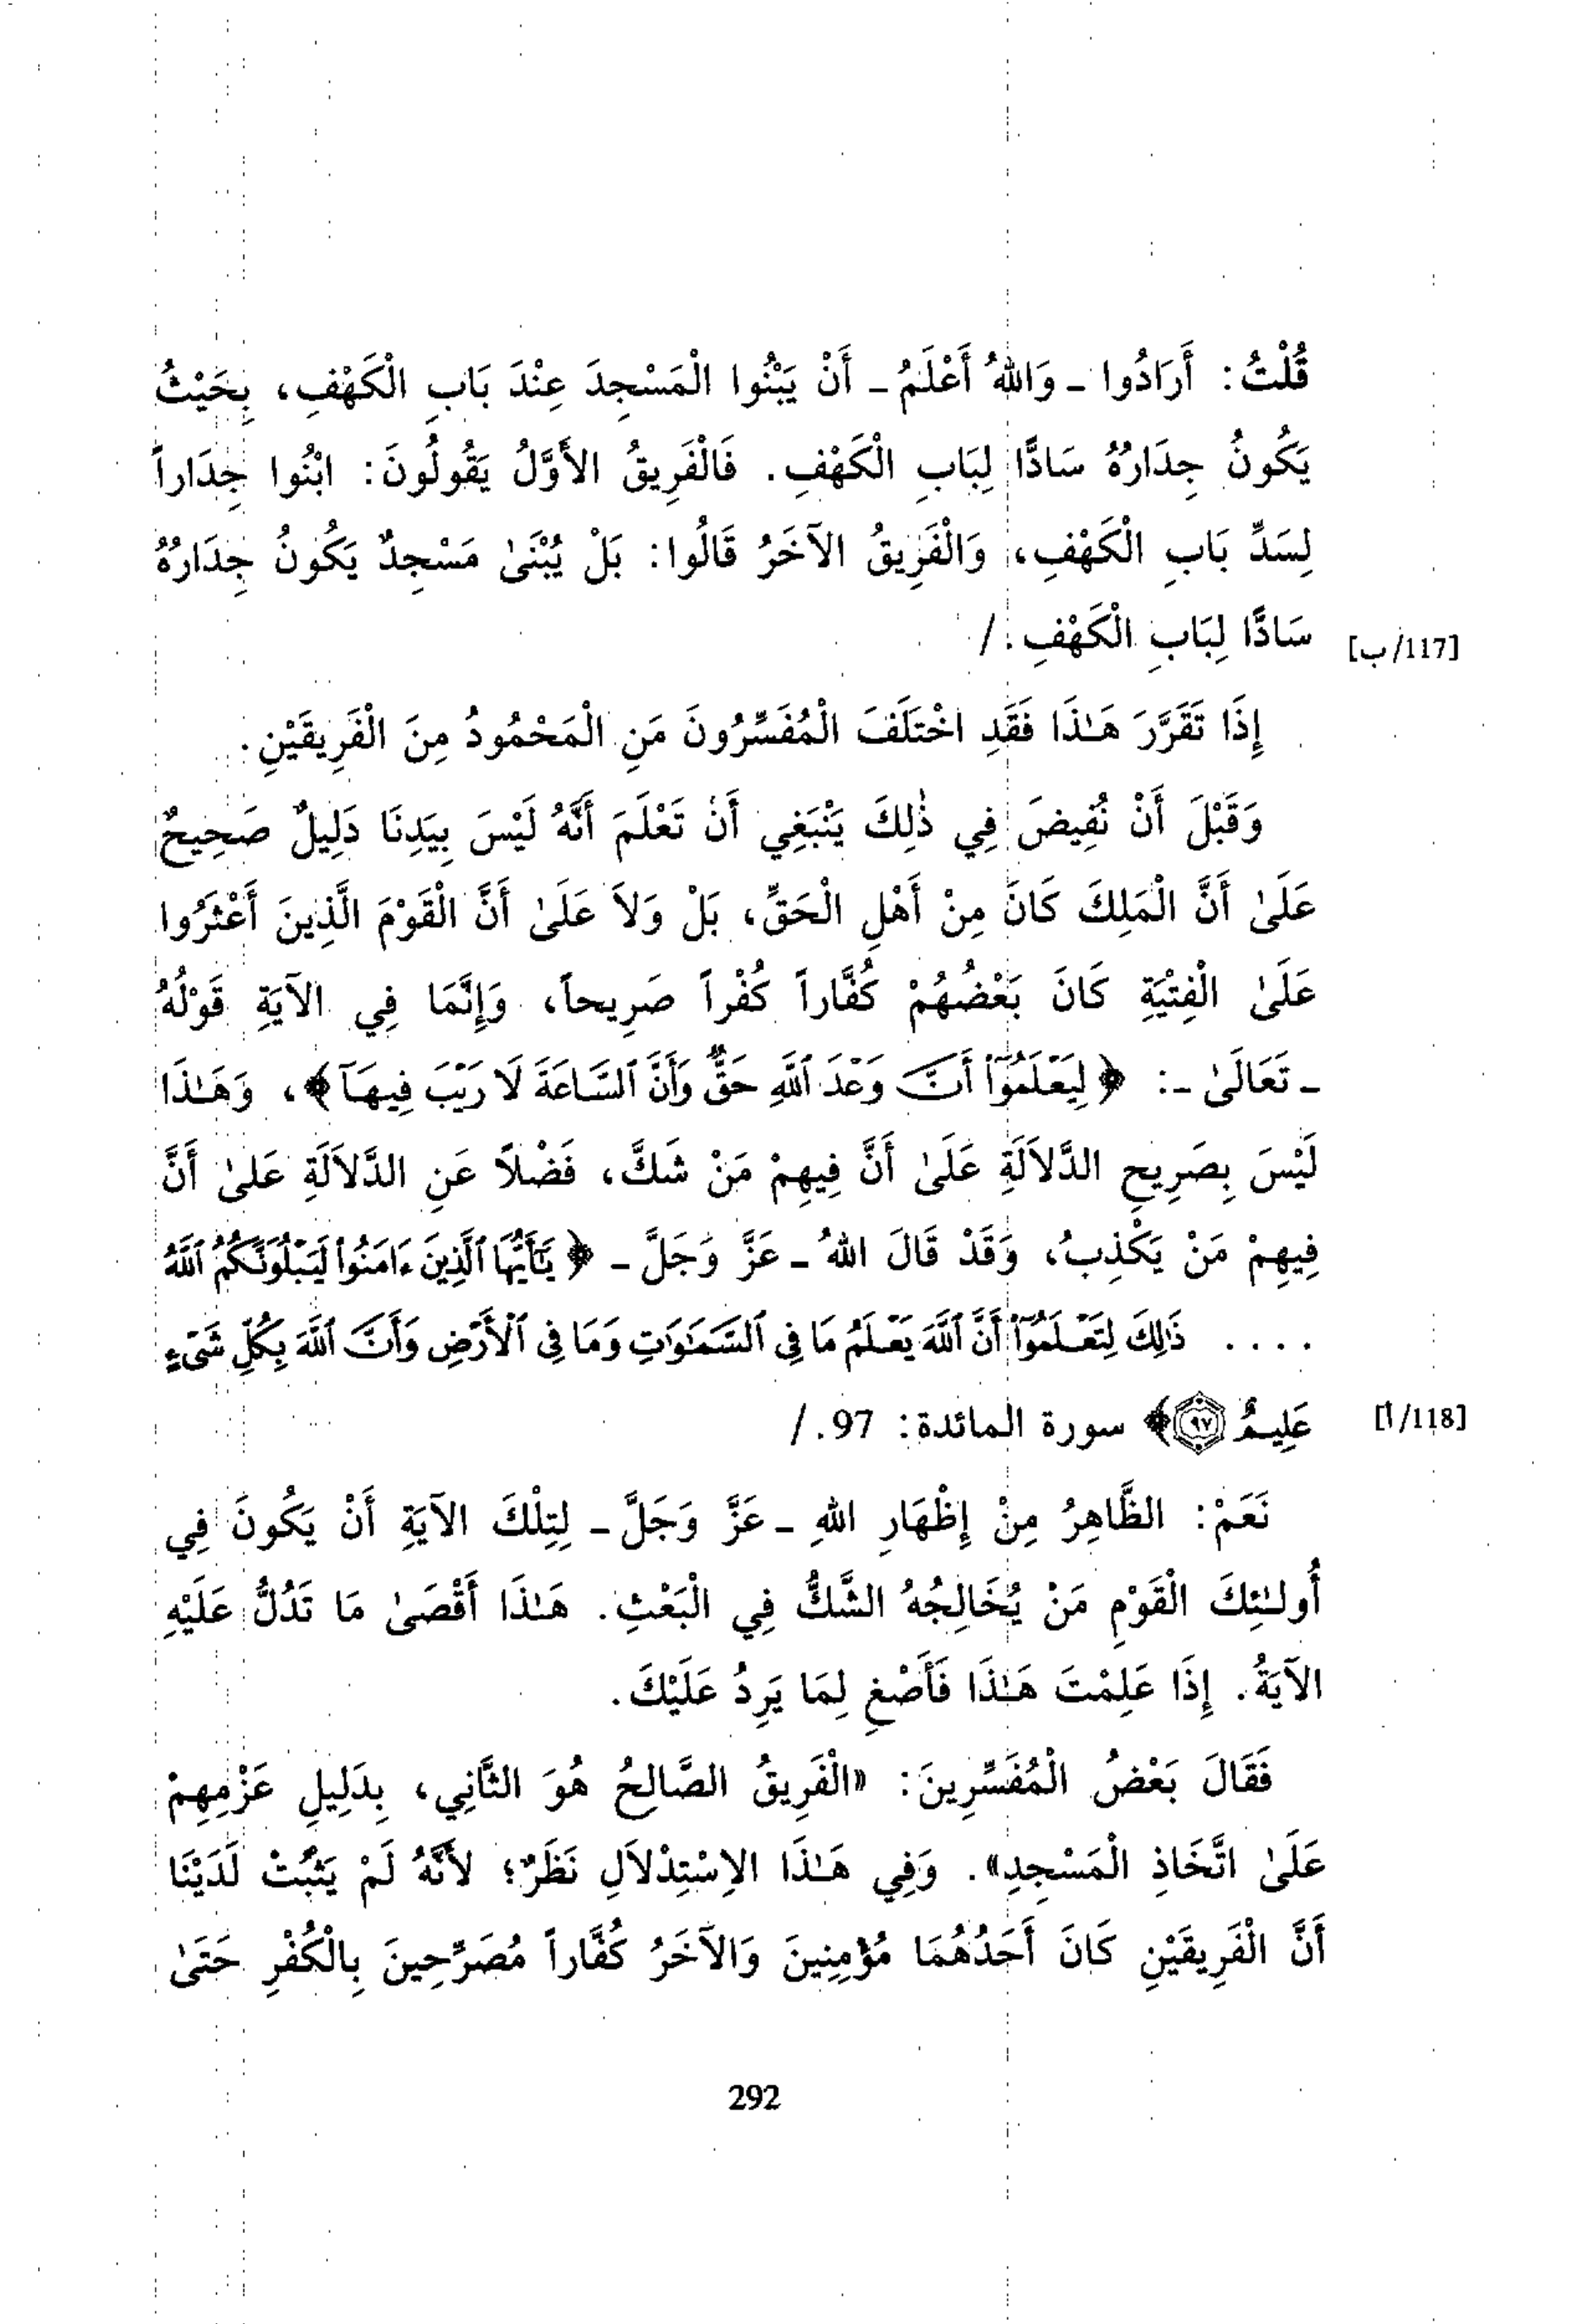 قُلْتُ: أَرَادُوا ـ وَاللهُ أَعْلَمُ ـ أَنْ يَبْنُوا الْمَسْجِدَ عِنْدَ بَابِ الْكَهْفِ، بِحَيْثُ
يَكُونُ جِدَارُهُ سَادًّا لِبَابِ الْكَهْفِ. فَالْفَرِيقُ الأَوَّلُ يَقُولُونَ: ابْنُوا جِدَاراً
لِسَدِّ بَابِ الْكَهْفِ، وَالْفَرِيقُ الآخَرُ قَالُوا: بَلْ يُبْنَىٰ مَسْجِدٌ يَكُونُ جِدَارُهُ
سَادًّا لِبَابِ الْكَهْفِ. / [117/ب]
إِذَا تَقَرَّرَ هَـٰذَا فَقَدِ اخْتَلَفَ الْمُفَسِّرُونَ مَنِ الْمَحْمُودُ مِنَ الْفَرِيقَيْنِ.
وَقَبْلَ أَنْ نُفِيضَ فِي ذٰلِكَ يَنْبَغِي أَنْ تَعْلَمَ أَنَّهُ لَيْسَ بِيَدِنَا دَلِيلٌ صَحِيحٌ
عَلَىٰ أَنَّ الْمَلِكَ كَانَ مِنْ أَهْلِ الْحَقِّ، بَلْ وَلاَ عَلَىٰ أَنَّ الْقَوْمَ الَّذِينَ أَعْثَرُوا
عَلَىٰ الْفِتْيَةِ كَانَ بَعْضُهُمْ كُفَّاراً كُفْراً صَرِيحاً، وَإِنَّمَا فِي الآيَةِ قَوْلُهُ
ـ تَعَالَىٰ ـ: ﴿ لِيَعْلَمُوٓا۟ أَنَّ وَعْدَ ٱللَّهِ حَقٌّ وَأَنَّ ٱلسَّاعَةَ لَا رَيْبَ فِيهَآ ﴾، وَهَـٰذَا
لَيْسَ بِصَرِيحِ الدَّلاَلَةِ عَلَىٰ أَنَّ فِيهِمْ مَنْ شَكَّ، فَضْلاً عَنِ الدَّلاَلَةِ عَلَىٰ أَنَّ
فِيهِمْ مَنْ يَكْذِبُ، وَقَدْ قَالَ اللهُ ـ عَزَّ وَجَلَّ ـ ﴿ يَٰٓأَيُّهَا ٱلَّذِينَ ءَامَنُوا۟ لَيَبْلُوَنَّكُمُ ٱللَّهُ
.... ذَٰلِكَ لِتَعْلَمُوٓا۟ أَنَّ ٱللَّهَ يَعْلَمُ مَا فِى ٱلسَّمَٰوَٰتِ وَمَا فِى ٱلْأَرْضِ وَأَنَّ ٱللَّهَ بِكُلِّ شَىْءٍ
عَلِيمٌ ٩٧﴾ سورة المائدة: 97. / [118/أ]
نَعَمْ: الظَّاهِرُ مِنْ إِظْهَارِ اللهِ ـ عَزَّ وَجَلَّ ـ لِتِلْكَ الآيَةِ أَنْ يَكُونَ فِي
أُولـٰئِكَ الْقَوْمِ مَنْ يُخَالِجُهُ الشَّكُّ فِي الْبَعْثِ. هَـٰذَا أَقْصَىٰ مَا تَدُلُّ عَلَيْهِ
الآيَةُ. إِذَا عَلِمْتَ هَـٰذَا فَأَصْغِ لِمَا يَرِدُ عَلَيْكَ.
فَقَالَ بَعْضُ الْمُفَسِّرِينَ: «الْفَرِيقُ الصَّالِحُ هُوَ الثَّانِي، بِدَلِيلِ عَزْمِهِمْ
عَلَىٰ اتِّخَاذِ الْمَسْجِدِ». وَفِي هَـٰذَا الاِسْتِدْلاَلِ نَظَرٌ؛ لأَنَّهُ لَمْ يَثْبُتْ لَدَيْنَا
أَنَّ الْفَرِيقَيْنِ كَانَ أَحَدُهُمَا مُؤْمِنِينَ وَالآخَرُ كُفَّاراً مُصَرِّحِينَ بِالْكُفْرِ حَتَىٰ
292